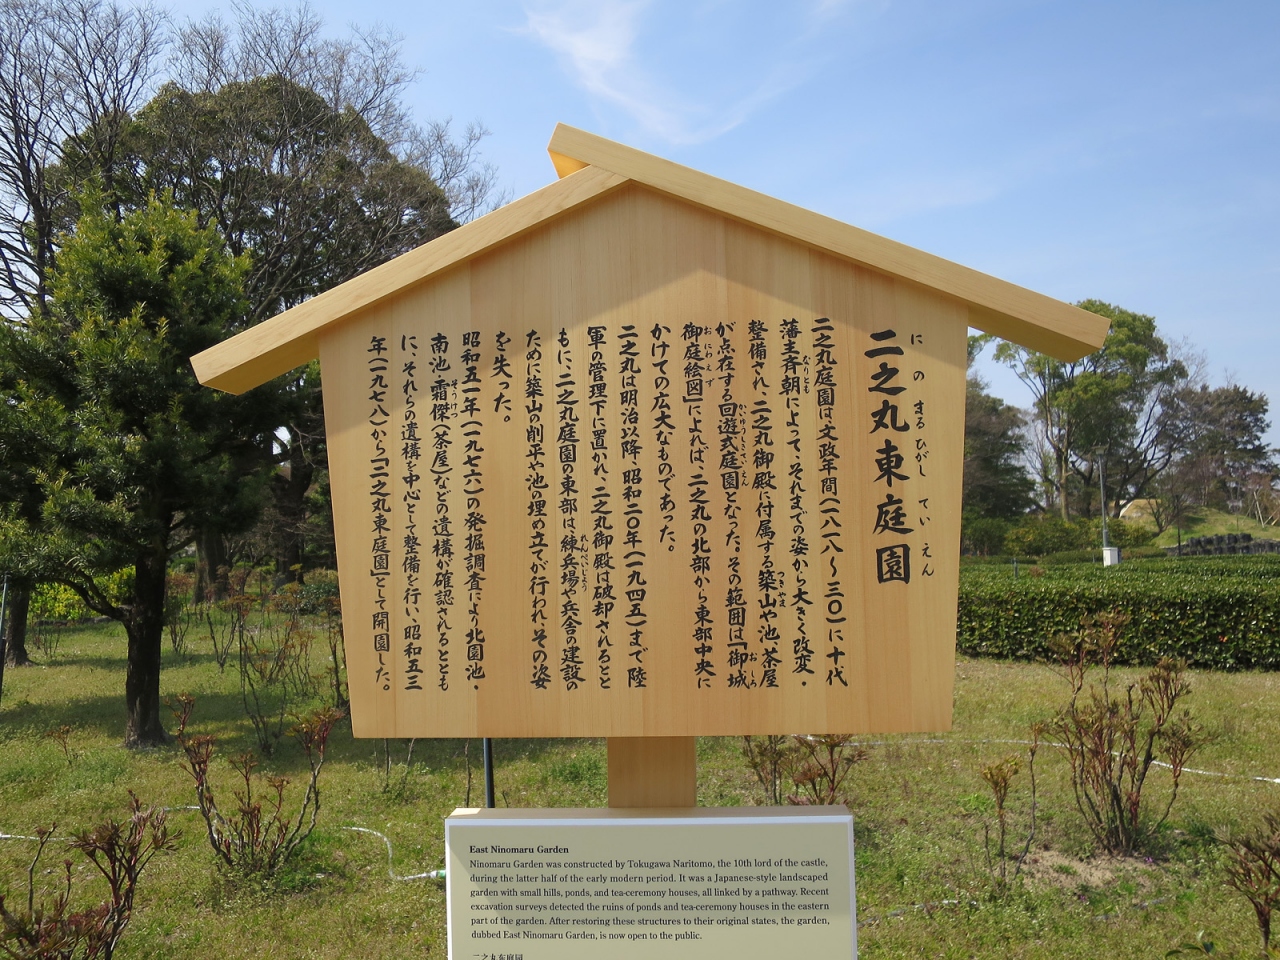 二之丸東庭園
にのまるひがしていえん
二之丸庭園は文政年間(一八一八〜三〇)に十代
藩主斉朝によって、それまでの姿から大きく改変・
なりとも
整備され、二之丸御殿に付属する築山や池、茶屋
つきやま
が点在する回遊式庭園となった。その範囲は「御城
かいゆうしきていえん
おしろ
御庭絵図」によれば、二之丸の北部から東部中央に
おにわえず
かけての広大なものであった。
二之丸は明治以降、昭和二〇年(一九四五)まで陸
軍の管理下に置かれ、二之丸御殿は破却されるとと
もに、二之丸庭園の東部は練兵場や兵舎の建設の
れんぺいじょう
ために築山の削平や池の埋め立てが行われ、その姿
を失った。
昭和五一年(一九七六)の発掘調査により北園池・
南池、霜傑(茶屋)などの遺構が確認されるととも
そうけつ
に、それらの遺構を中心として整備を行い、昭和五三
年(一九七八)から「二之丸東庭園」として開園した。
East Ninomaru Garden
Ninomaru Garden was constructed by Tokugawa Naritomo, the 10th lord of the castle,
during the latter half of the early modern period. It was a Japanese-style landscaped
garden with small hills, ponds, and tea-ceremony houses, all linked by a pathway. Recent
excavation surveys detected the ruins of ponds and tea-ceremony houses in the eastern
part of the garden. After restoring these structures to their original states, the garden,
dubbed East Ninomaru Garden, is now open to the public.